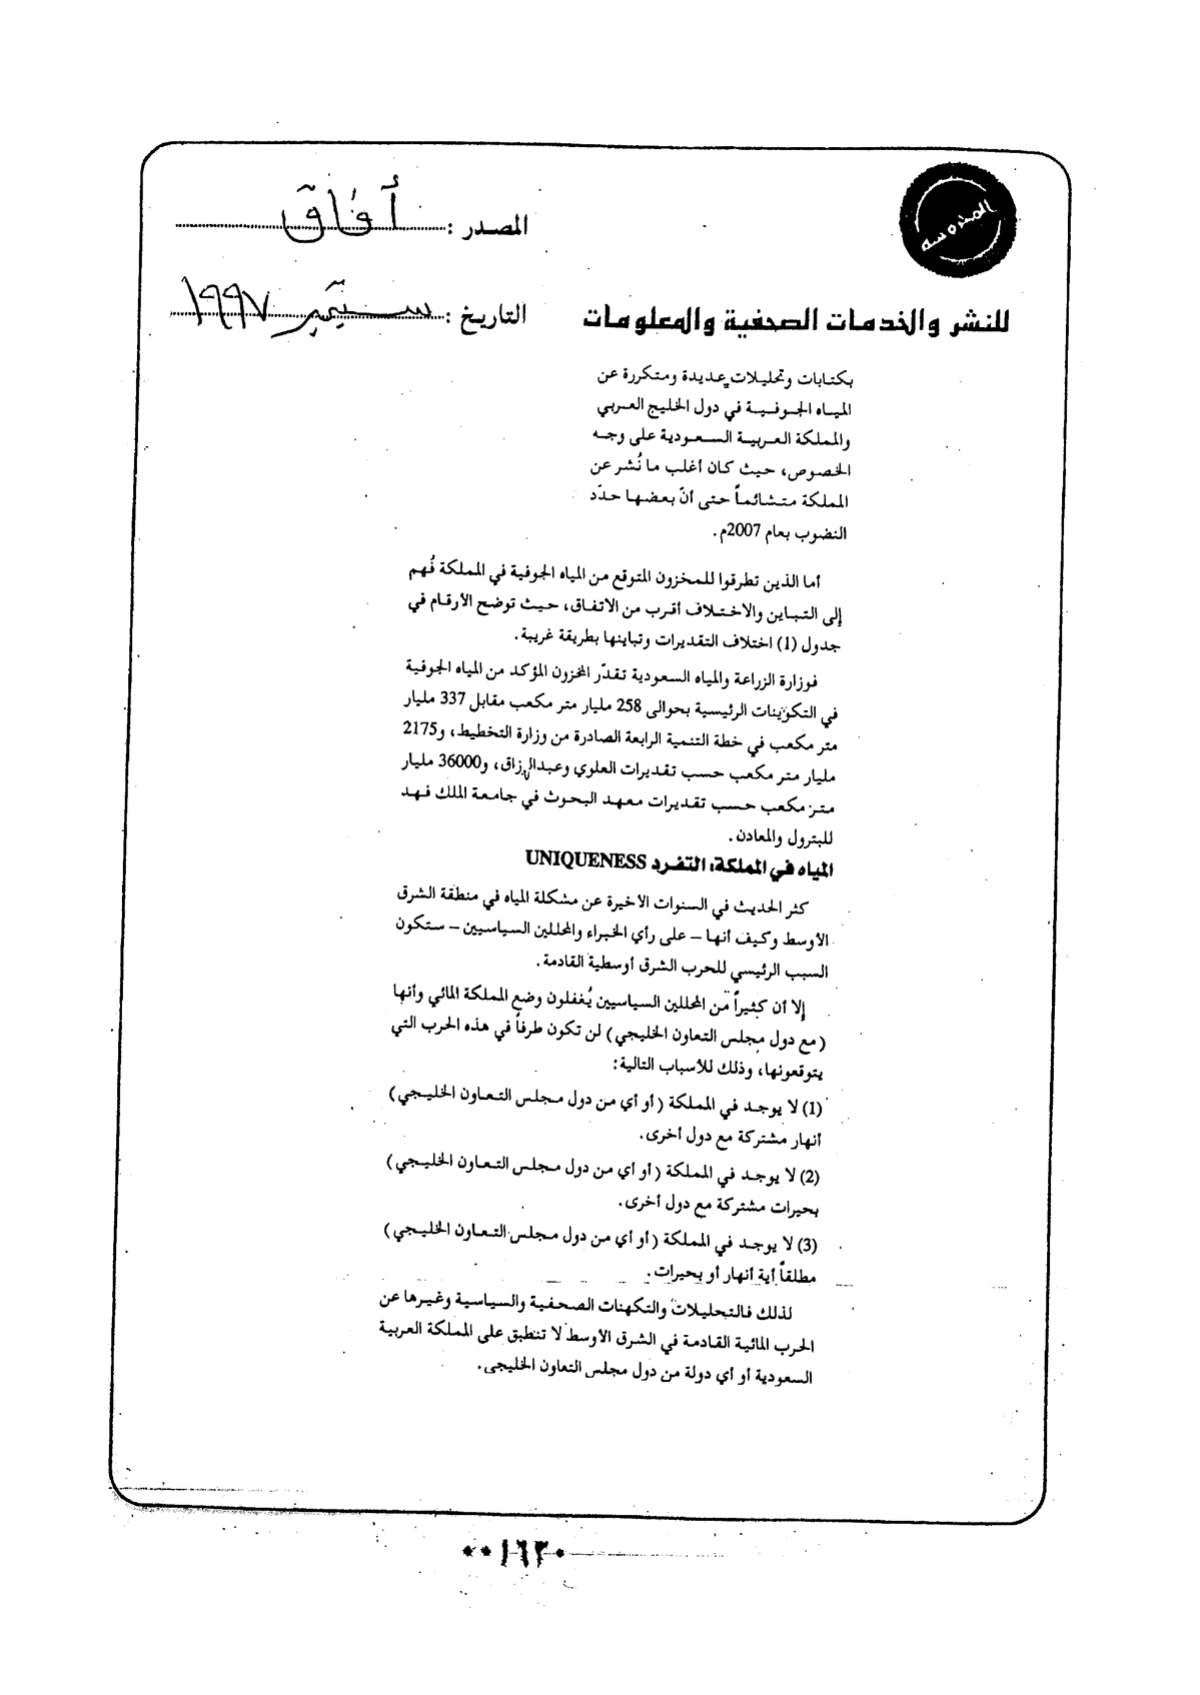 المحروسة
المصدر : أفاق
للنشر والخدمات الصحفية والمعلومات
التاريخ : سبتمبر ١٩٩٧
بكتابات وتحليلات عديدة ومتكررة عن
المياه الجوفية في دول الخليج العربي
والمملكة العربية السعودية على وجه
الخصوص، حيث كان أغلب ما نُشر عن
المملكة متشائماً حتى أنّ بعضها حدّد
النضوب بعام 2007م.
أما الذين تطرقوا للمخزون المتوقع من المياه الجوفية في المملكة فُهم
إلى التباين والاختلاف أقرب من الاتفاق، حيث توضح الأرقام في
جدول (1) اختلاف التقديرات وتباينها بطريقة غريبة.
فوزارة الزراعة والمياه السعودية تقدّر المخزون المؤكد من المياه الجوفية
في التكوينات الرئيسية بحوالى 258 مليار متر مكعب مقابل 337 مليار
متر مكعب في خطة التنمية الرابعة الصادرة من وزارة التخطيط، و2175
مليار متر مكعب حسب تقديرات العلوي وعبدالرزاق، و36000 مليار
متر مكعب حسب تقديرات معهد البحوث في جامعة الملك فهد
للبترول والمعادن.
المياه في المملكة: التفرد UNIQUENESS
كثر الحديث في السنوات الأخيرة عن مشكلة المياه في منطقة الشرق
الأوسط وكيف أنها – على رأي الخبراء والمحللين السياسيين – ستكون
السبب الرئيسي للحرب الشرق أوسطية القادمة.
إلا أن كثيراً من المحللين السياسيين يُغفلون وضع المملكة المائي وأنها
(مع دول مجلس التعاون الخليجي) لن تكون طرفاً في هذه الحرب التي
يتوقعونها، وذلك للأسباب التالية:
(1) لا يوجد في المملكة (أو أي من دول مجلس التعاون الخليجي)
أنهار مشتركة مع دول أخرى.
(2) لا يوجد في المملكة (أو أي من دول مجلس التعاون الخليجي)
بحيرات مشتركة مع دول أخرى.
(3) لا يوجد في المملكة (أو أي من دول مجلس التعاون الخليجي)
مطلقاً أية أنهار أو بحيرات.
لذلك فالتحليلات والتكهنات الصحفية والسياسية وغيرها عن
الحرب المائية القادمة في الشرق الأوسط لا تنطبق على المملكة العربية
السعودية أو أي دولة من دول مجلس التعاون الخليجي.
٠٠١٦٣٠